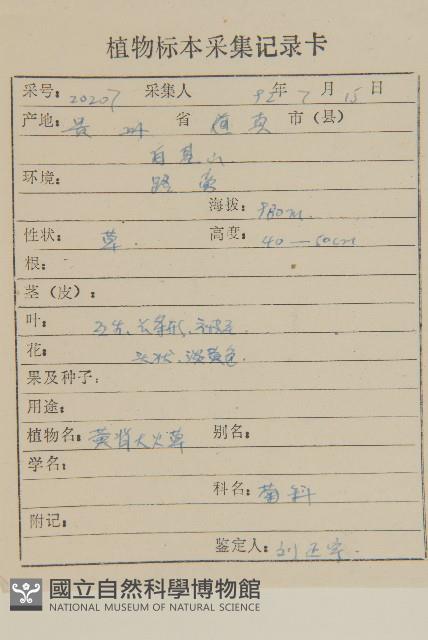 植物标本采集记录卡
采号: 20207 采集人 92年7月15日
产地: 贵州 省 道真 市(县)
白基山
环境: 路旁
海拔: 980m.
性状: 草 高度: 40—50cm
根:
茎(皮):
叶: 互生、长条形、
花: 头状、淡黄色.
果及种子:
用途:
植物名: 黄背大火草 别名:
学名:
科名: 菊科
附记:
鉴定人: 刘正宇.
國立自然科學博物館
NATIONAL MUSEUM OF NATURAL SCIENCE